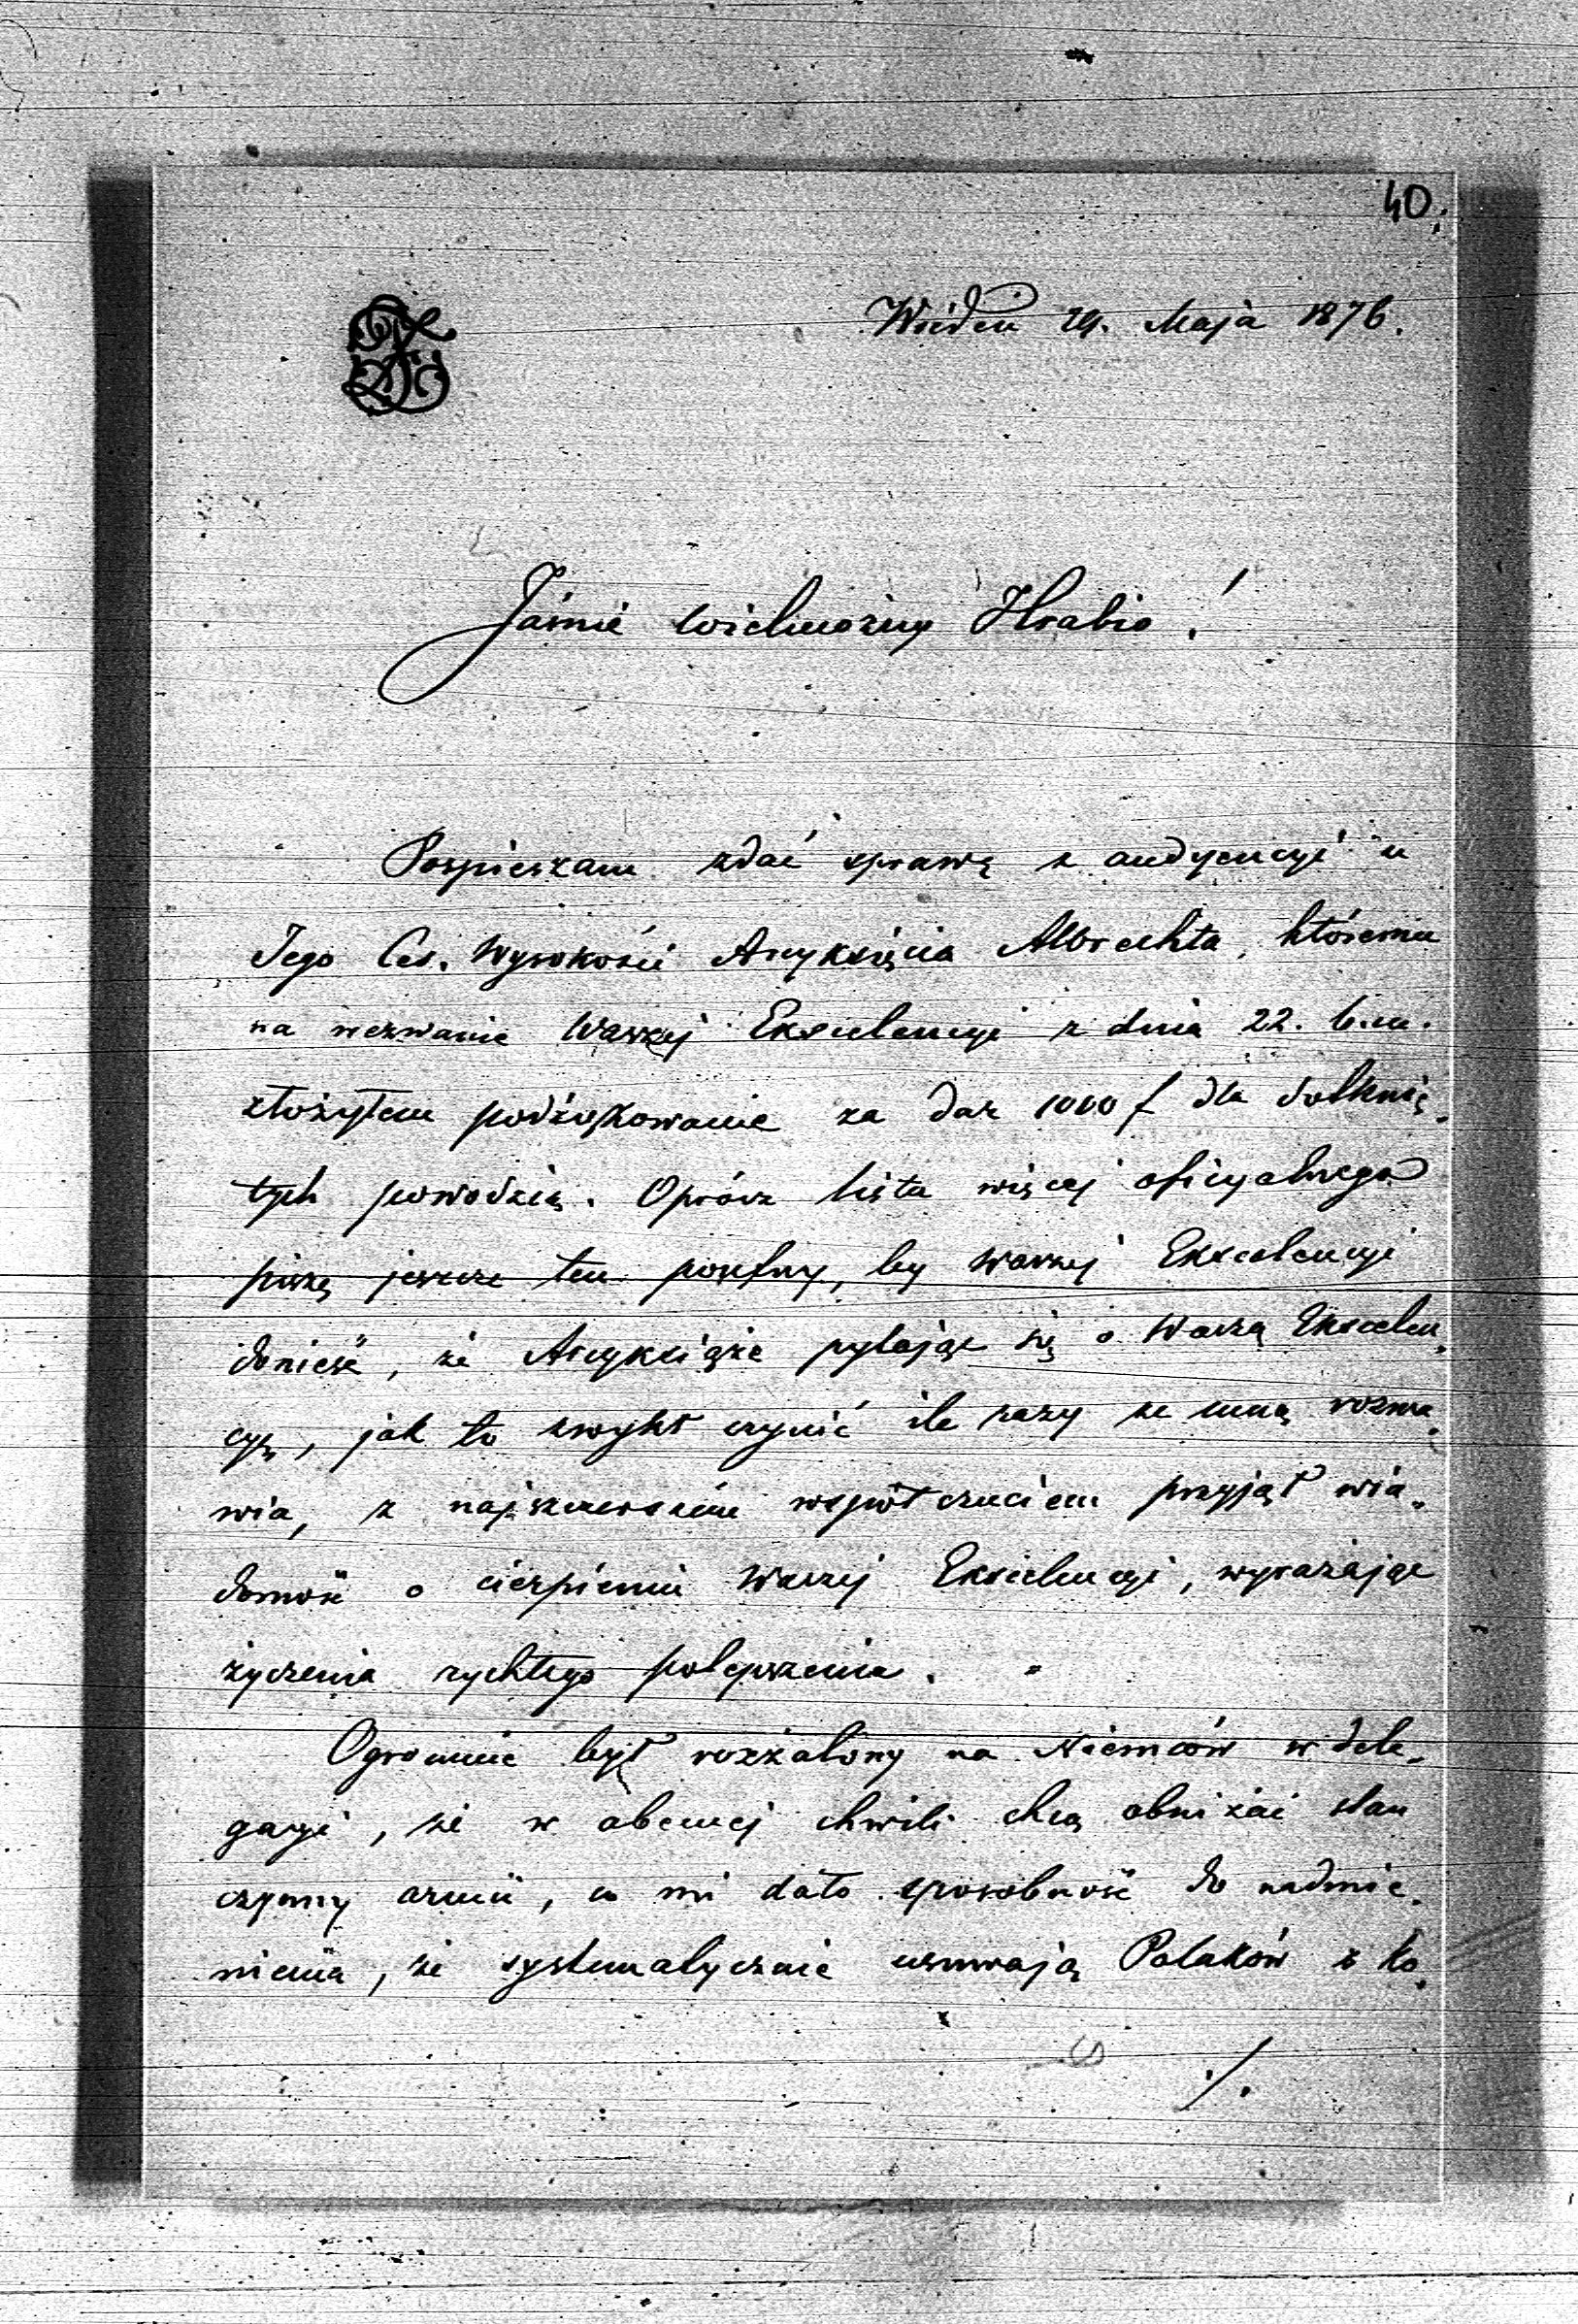 40.
Wiedeń 24. Maja 1876.
Jaśnie wielmożny Hrabio!
Pospieszam zdać sprawę z audyencyi u
Jego Ces. Wysokości Arcyksięcia Albrechta, któremu
na wezwanie Waszej Ekscelencyi z dnia 22. b.m.
złożyłem podziękowanie za dar 1000 f dla dotknię-
tych powodzią. Oprócz listu więcej oficyalnego
piszę jeszcze ten poufny, by Waszej Ekscelencyi
donieść, że Arcyksiąże pytając się o Waszą Ekscelen-
cyę, jak to zwykł czynić ile razy ze mną rozma-
wia, z najszczerszém współczuciem przyjął wia-
domość o cierpieniu Waszej Ekscelencyi, wyrażając
życzenia rychłego polepszenia.
Ogromnie był rozżalony na Niemców w dele-
gacyi, że w obecnej chwili chcą obniżać stan
czynny armii, co mi dało sposobność do nadmie-
nienia, że systematycznie usuwają Polaków z ko-
./.